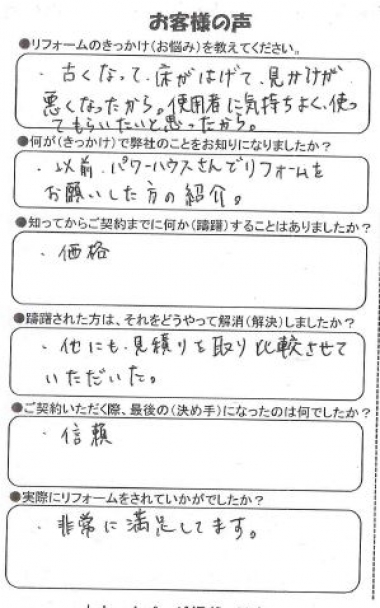 お客様の声
●リフォームのきっかけ(お悩み)を教えてください。
・古くなって、床がはげて、見かけが
悪くなったから。使用者に気持ちよく、使っ
てもらいたいと思ったから。
●何が(きっかけ)で弊社のことをお知りになりましたか?
・以前、パワーハウスさんでリフォームを
お願いした方の紹介。
●知ってからご契約までに何か(躊躇)することはありましたか?
・価格
●躊躇された方は、それをどうやって解消(解決)しましたか?
・他にも、見積りを取り比較させて
いただいた。
●ご契約いただく際、最後の(決め手)になったのは何でしたか?
・信頼
●実際にリフォームをされていかがでしたか?
・非常に満足してます。